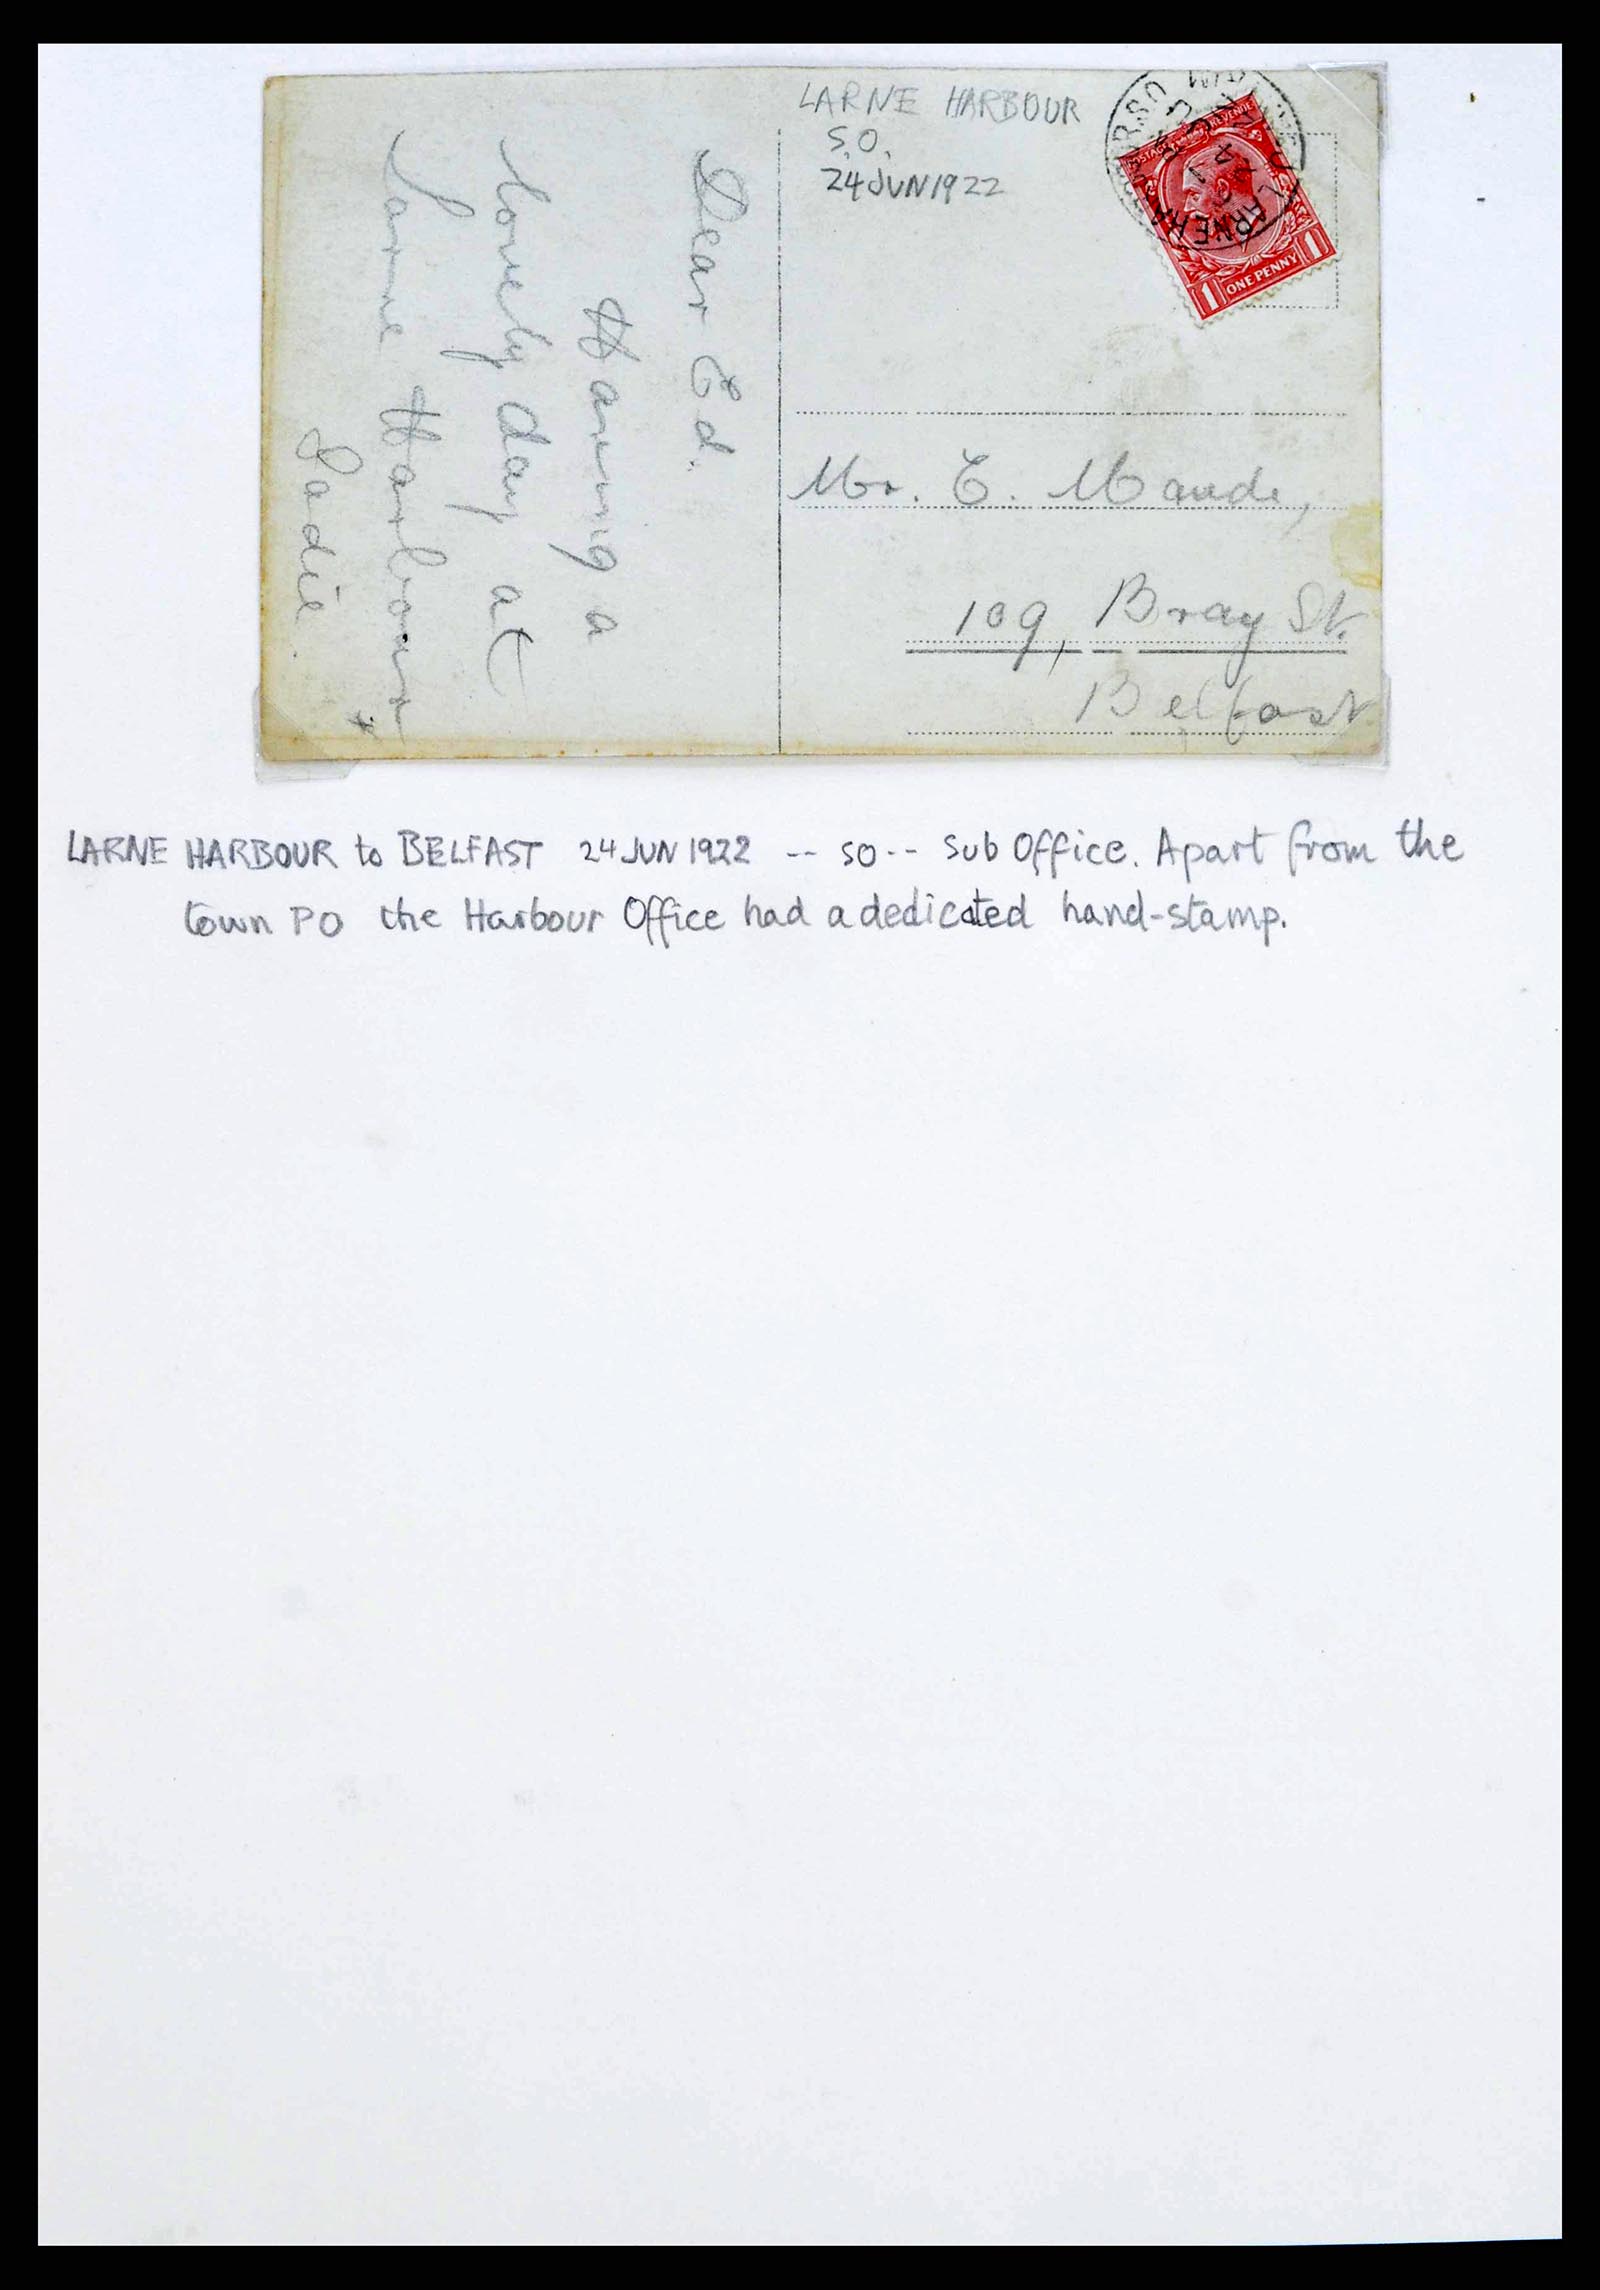 LARNE HARBOUR
S.O.
24 JUN 1922
POSTAGE REVENUE
1 ONE PENNY 1
LARNE HA
R.S.O
Dear Ed.
Having a
lovely day at
Larne Harbour
Sadie.
Mr. E. Maude,
109, Bray St.
Belfast
LARNE HARBOUR to BELFAST 24 JUN 1922 -- SO -- Sub Office. Apart from the
town PO the Harbour Office had a dedicated hand-stamp.